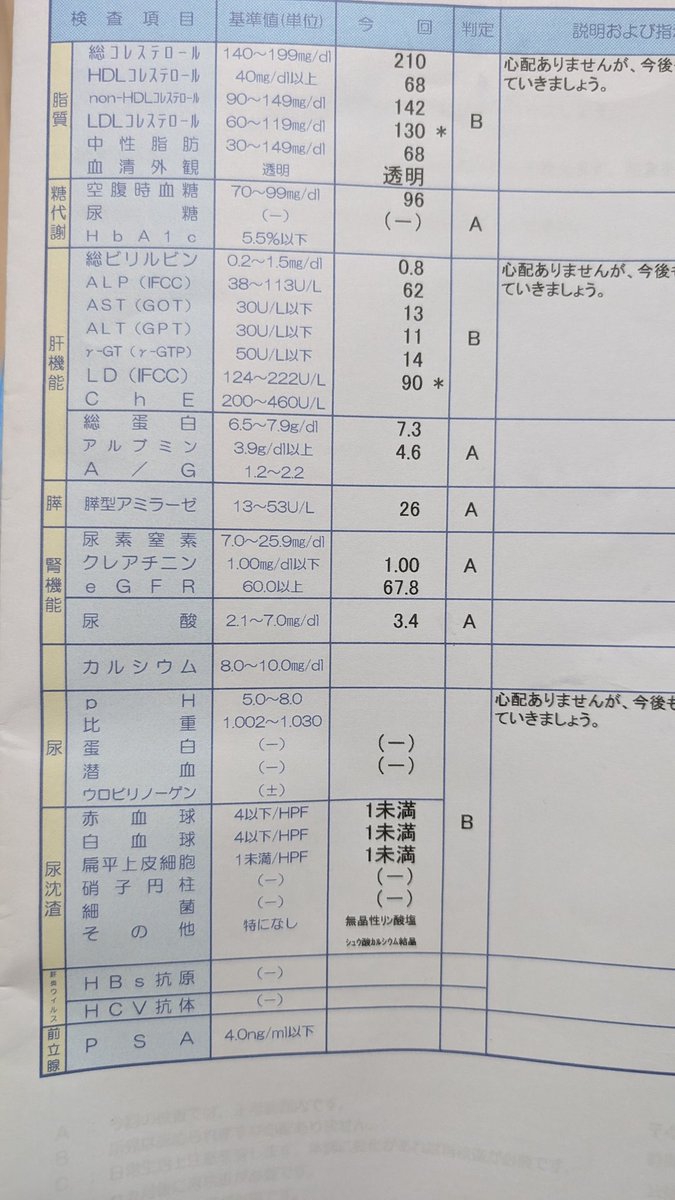 検査項目 基準値(単位) 今回 判定 説明および指
脂質
総コレステロール 140〜199mg/dl 210
HDLコレステロール 40mg/dl以上 68
non-HDLコレステロール 90〜149mg/dl 142
LDLコレステロール 60〜119mg/dl 130 *
中性脂肪 30〜149mg/dl 68
血清外観 透明 透明
B
心配ありませんが、今後
ていきましょう。
糖代謝
空腹時血糖 70〜99mg/dl 96
尿糖 (−) (−)
HbA1c 5.5%以下
A
肝機能
総ビリルビン 0.2〜1.5mg/dl 0.8
ALP(IFCC) 38〜113U/L 62
AST(GOT) 30U/L以下 13
ALT(GPT) 30U/L以下 11
γ-GT(γ-GTP) 50U/L以下 14
LD(IFCC) 124〜222U/L 90 *
ChE 200〜460U/L
B
心配ありませんが、今後も
ていきましょう。
総蛋白 6.5〜7.9g/dl 7.3
アルブミン 3.9g/dl以上 4.6
A/G 1.2〜2.2
A
膵 膵型アミラーゼ 13〜53U/L 26 A
腎機能
尿素窒素 7.0〜25.9mg/dl
クレアチニン 1.00mg/dl以下 1.00
eGFR 60.0以上 67.8
A
尿酸 2.1〜7.0mg/dl 3.4 A
カルシウム 8.0〜10.0mg/dl
尿
pH 5.0〜8.0
比重 1.002〜1.030
蛋白 (−) (−)
潜血 (−) (−)
ウロビリノーゲン (±)
心配ありませんが、今後も
ていきましょう。
B
尿沈渣
赤血球 4以下/HPF 1未満
白血球 4以下/HPF 1未満
扁平上皮細胞 1未満/HPF 1未満
硝子円柱 (−) (−)
細菌 (−) (−)
その他 特になし 無晶性リン酸塩
シュウ酸カルシウム結晶
肝炎ウイルス
HBs抗原 (−)
HCV抗体 (−)
前立腺 PSA 4.0ng/ml以下